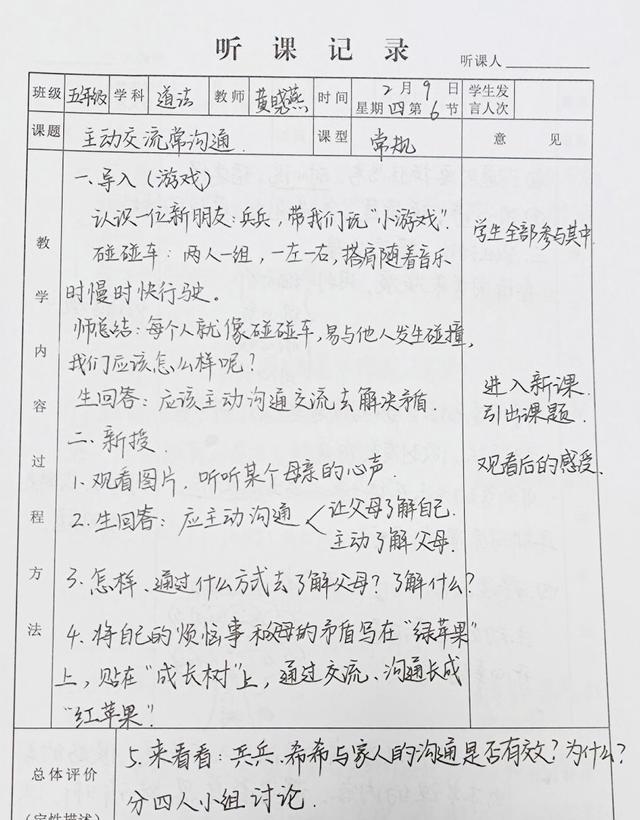 听课记录
听课人
班级 五年级 学科 道法 教师 黄惑燕 时间 2月9日 星期四第6节 学生发言人次
课题 主动交流常沟通. 课型 常规 意见
教学内容过程方法
一.导入(游戏)
认识一位新朋友:兵兵,带我们玩“小游戏”.
碰碰车:两人一组,一左一右,搭肩随着音乐
时慢时快行驶。
学生全部参与其中.
师总结:每个人就像碰碰车,易与他人发生碰撞,
我们应该怎么样呢?
生回答:应该主动沟通交流去解决矛盾.
进入新课.
引出课题.
二.新授.
1.观看图片,听听某个母亲的心声.
观看后的感受.
2.生回答:应主动沟通 让父母了解自己.
主动了解父母.
3.怎样、通过什么方式去了解父母?了解什么?
4.将自己的烦恼事和父母的矛盾写在“绿苹果”
上,贴在“成长树”上,通过交流、沟通长成
“红苹果”.
总体评价
(定性描述)
5.来看看:兵兵、希希与家人的沟通是否有效?为什么?
分四人小组讨论.